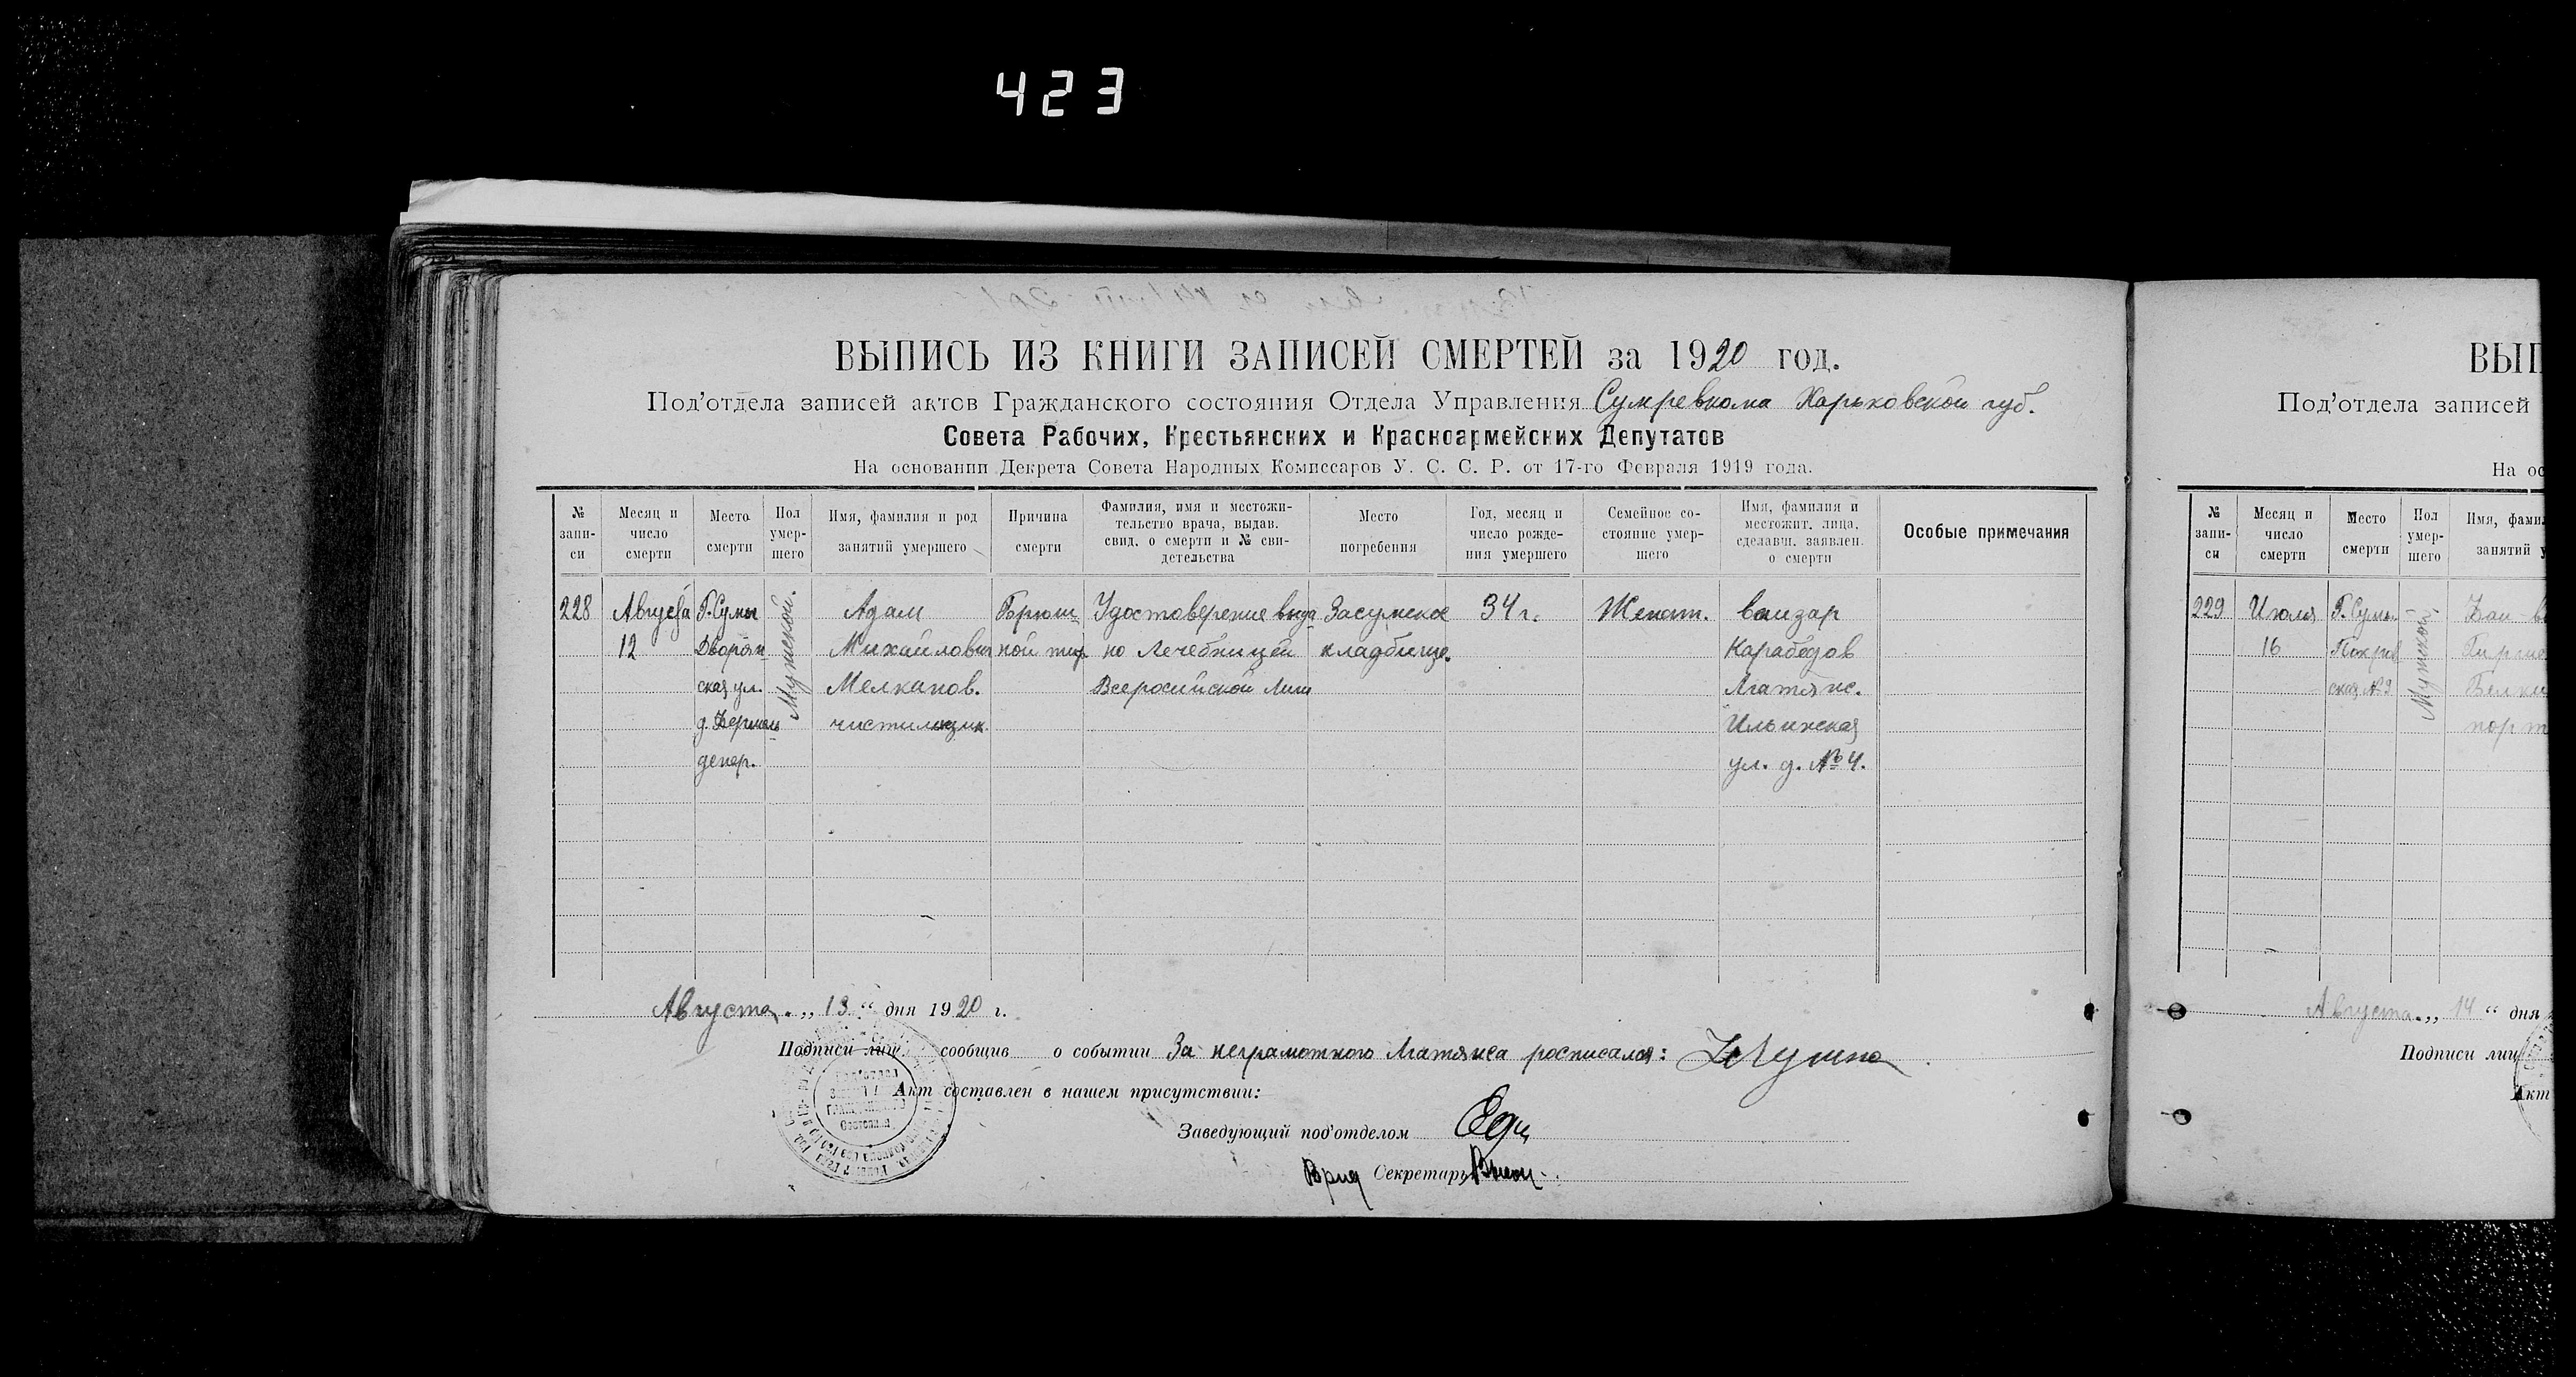 423
ВЫПИСЬ ИЗ КНИГИ ЗАПИСЕЙ СМЕРТЕЙ за 1920 год.
Под'отдела записей актов Гражданского состояния Отдела Управления Сумревкома Харьковской губ.
Совета Рабочих, Крестьянских и Красноармейских Депутатов
На основании Декрета Совета Народных Комиссаров У. С. С. Р. от 17-го Февраля 1919 года.
№ запи-си
Месяц и число смерти
Место смерти
Пол умер-шего
Имя, фамилия и род занятий умершего
Причина смерти
Фамилия, имя и местожи-тельство врача, выдав. свид. о смерти и № сви-детельства
Место погребения
Год, месяц и число рожде-ния умершего
Семейное со-стояние умер-шего
Имя, фамилия и местожит. лица, сделавш. заявлен. о смерти
Особые примечания
228
Августа
12
Г. Сумы
Дворян-
ская ул.
д.
Мужской.
Адам
Михайлович
Мелканов.
чистильщик.
Брюш-
ной тиф
Удостоверение выда
но Лечебницей
Всеросийской
Засумское
кладбище.
34 г.
Женат.
Ваизар
Карабедов
Агатянс.
Ильинская
ул. д. № 4.
Августа „ 13 “ дня 1920 г.
Подписи лиц сообщив о событии За неграмотного Агатянса росписался:
Акт составлен в нашем присутствии:
Заведующий под'отделом
Врид Секретарь
ВЫП
Под'отдела записей
На ос
№ запи-си
Месяц и число смерти
Место смерти
Пол умер-шего
Имя, фами
занятий у
229
Июля
16
Г. Сумы
Покров
ская № 9
Мужской
Августа „ 14 “ дня
Подписи лиц
Акт